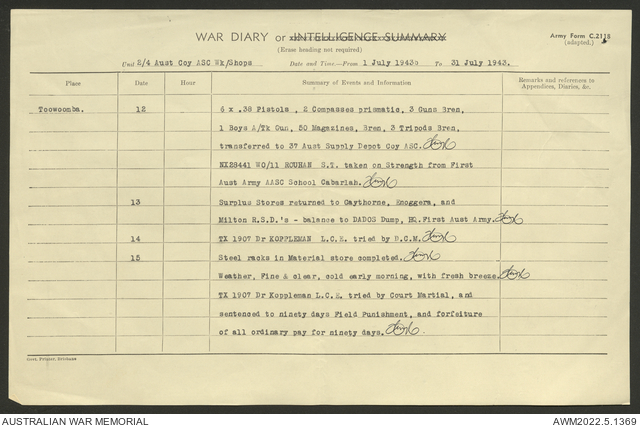 WAR DIARY or INTELLIGENCE SUMMARY
Army Form C.2118
(adapted.)
(Erase heading not required)
Unit 2/4 Aust Coy ASC Wk/Shops Date and Time.—From 1 July 1943. to 31 July 1943.
Place Date Hour Summary of Events and Information Remarks and references to Appendices, Diaries, &c.
Toowoomba. 12 6 x .38 Pistols , 2 Compasses prismatic, 3 Guns Bren,
1 Boys A/Tk Gun, 50 Magazines, Bren, 3 Tripods Bren,
transferred to 37 Aust Supply Depot Coy ASC.
NX28441 WO/11 ROUHAN S.T. taken on Strength from First
Aust Army AASC School Cabarlah.
13 Surplus Stores returned to Gaythorne, Enoggera, and
Milton R.S.D.'s - balance to DADOS Dump, HQ.First Aust Army.
14 TX 1907 Dr KOPPLEMAN L.C.E. tried by D.C.M.
15 Steel racks in Material store completed.
Weather, Fine & clear, cold early morning, with fresh breeze.
TX 1907 Dr Koppleman L.C.E. tried by Court Martial, and
sentenced to ninety days Field Punishment, and forfeiture
of all ordinary pay for ninety days.
Govt. Printer, Brisbane
AUSTRALIAN WAR MEMORIAL AWM2022.5.1369